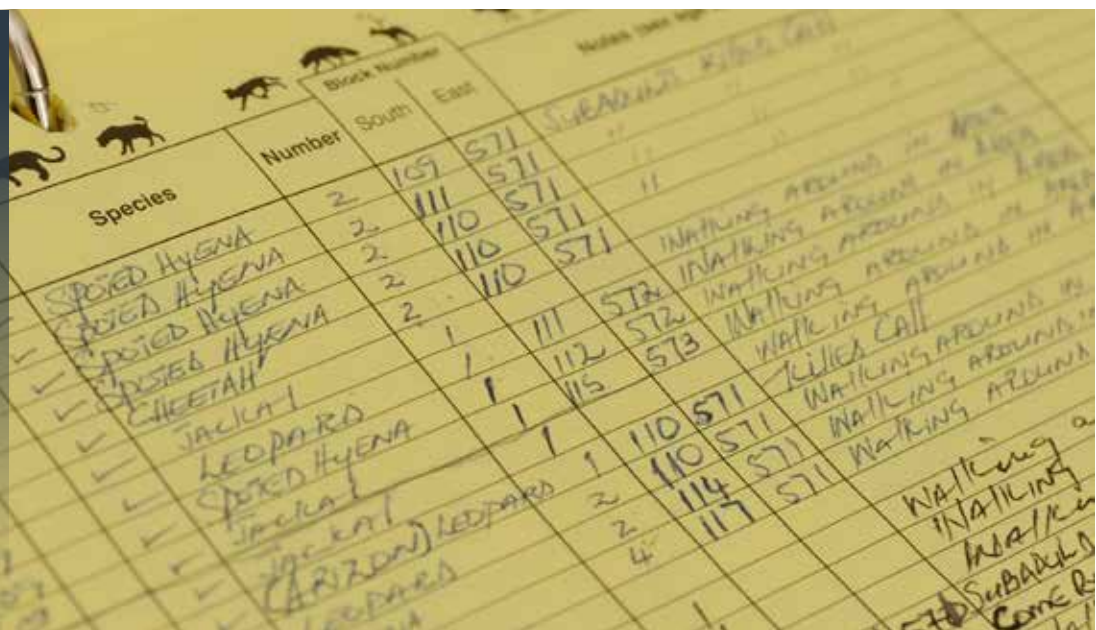 Block Number
Species Number South East Notes
SPOTED HYENA 2 109 571 SUBADULTS KILLED CALF
SPOTED HYENA 2 111 571 " "
SPOTED HYENA 2 110 571 " "
SPOTED HYENA 2 110 571 "
CHEETAH 2 110 571 WALKING AROUND IN AREA
JACKAL 1 111 572 WALKING AROUND IN AREA
LEOPARD 1 112 572 WALKING AROUND IN AREA
SPOTED HYENA 1 115 573 WALKING AROUND IN AREA
JACKAL 1 WALKING AROUND IN
JACKAL 1 110 571 KILLED CALF
(ARIZON) LEOPARD 1 110 571 WALKING AROUND IN
LEOPARD 2 114 571 WALKING AROUND IN
4 117 571 WALKING AROUND
WALKING
WALKING
WALKIN
SUBADUL
COME